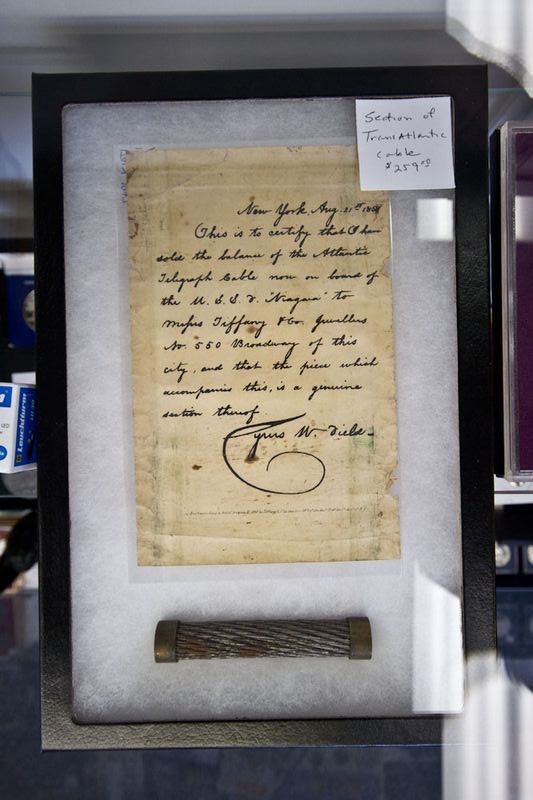 Section of
TransAtlantic
Cable
$259.00
New York, Aug. 21st 1858
This is to certify that I have
sold the balance of the Atlantic
Telegraph Cable now on board of
the U. S. S. F. "Niagara" to
Messrs Tiffany & Co. Jewellers
No. 550 Broadway of this
city, and that the piece which
accompanies this, is a genuine
section thereof.
Cyrus W. Field
Leuchtturm